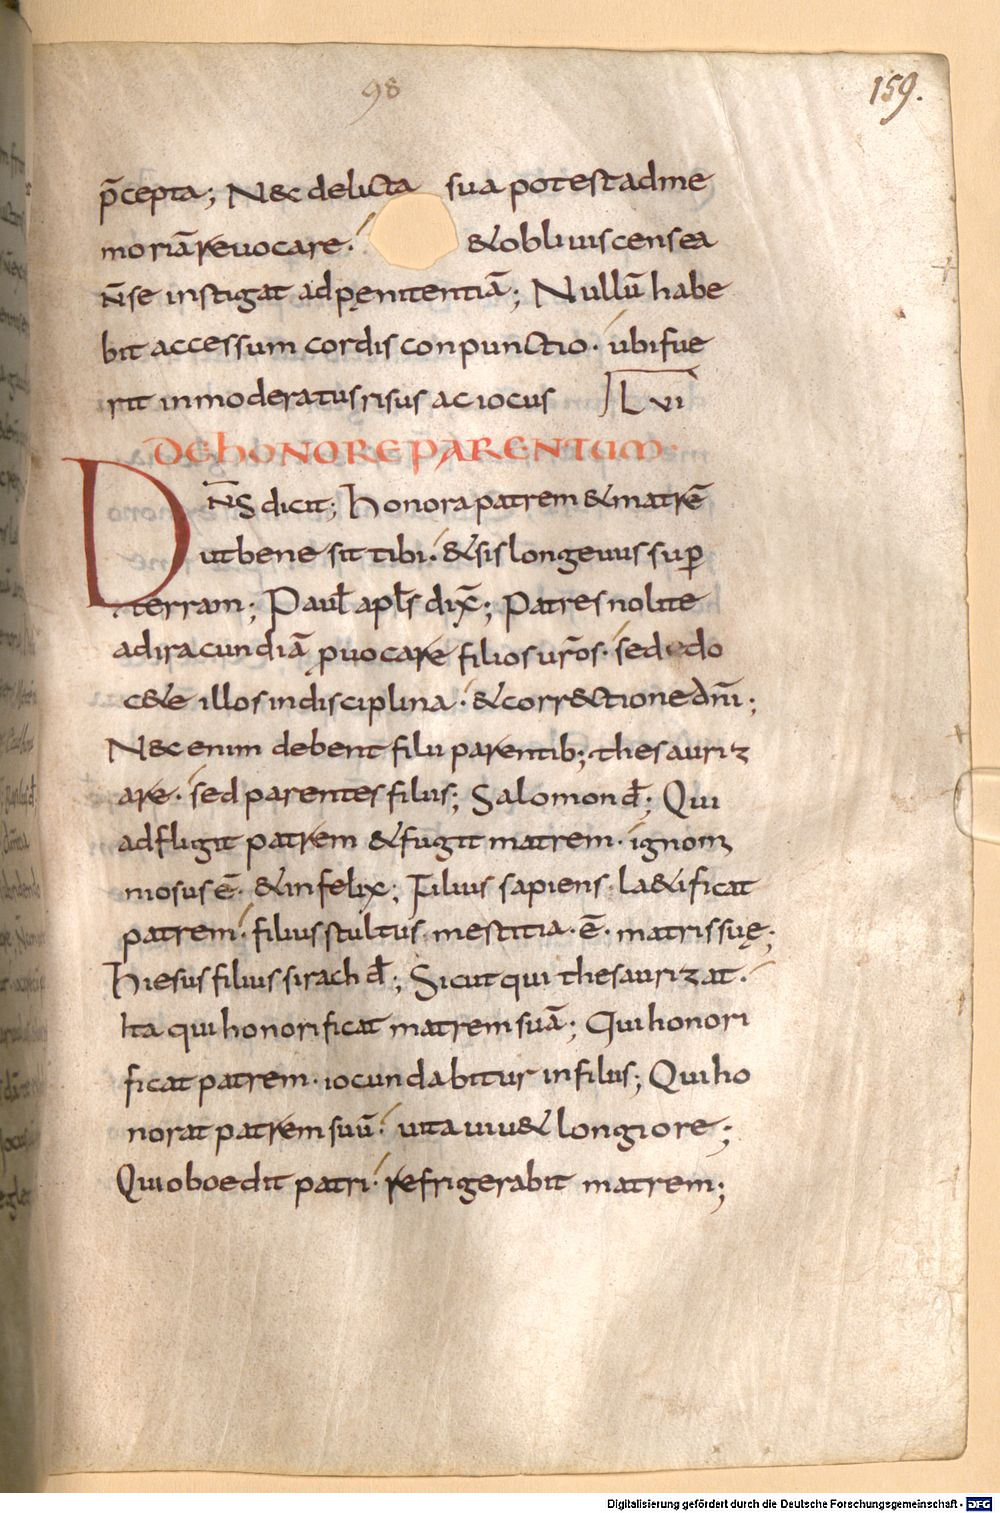 98
159.
p̄cepta; N&c delicta sua potest ad me
moriā revocare. & obliviscens ea
n̄ se instigat ad pęnitentiā; Nullū habe
bit accessum cordis conpunctio. ubi fue
rit inmoderatus risus ac iocus LVI
DE HONORE PARENTUM.
Dn̄s dicit; Honora patrem & matrē
ut bene sit tibi. & sis longevus sup̄
terram; Paul̄ apl̄s dix̄; Patres nolite
ad iracundiā ꝓvocare filios vr̄os. sed edo
c&e illos in disciplina. & corr&ctione dn̄i;
N&c enim debent filii parentib; thesauriz
are. sed parentes filiis; Salomon d̄; Qui
adfligit patrem & fugit matrem. ignom
niosus ē. & infelix; Filius sapiens. la&ificat
patrem. filius stultus mestitia. ē. matris suę;
Hiesus filius sirach d̄; Sicut qui thesaurizat.
Ita qui honorificat matrem suā; Qui honori
ficat patrem. iocundabitur in filiis; Qui ho
norat patrem suū. vita viv& longiore;
Qui oboedit patri. refrigerabit matrem;
Digitalisierung gefördert durch die Deutsche Forschungsgemeinschaft - DFG